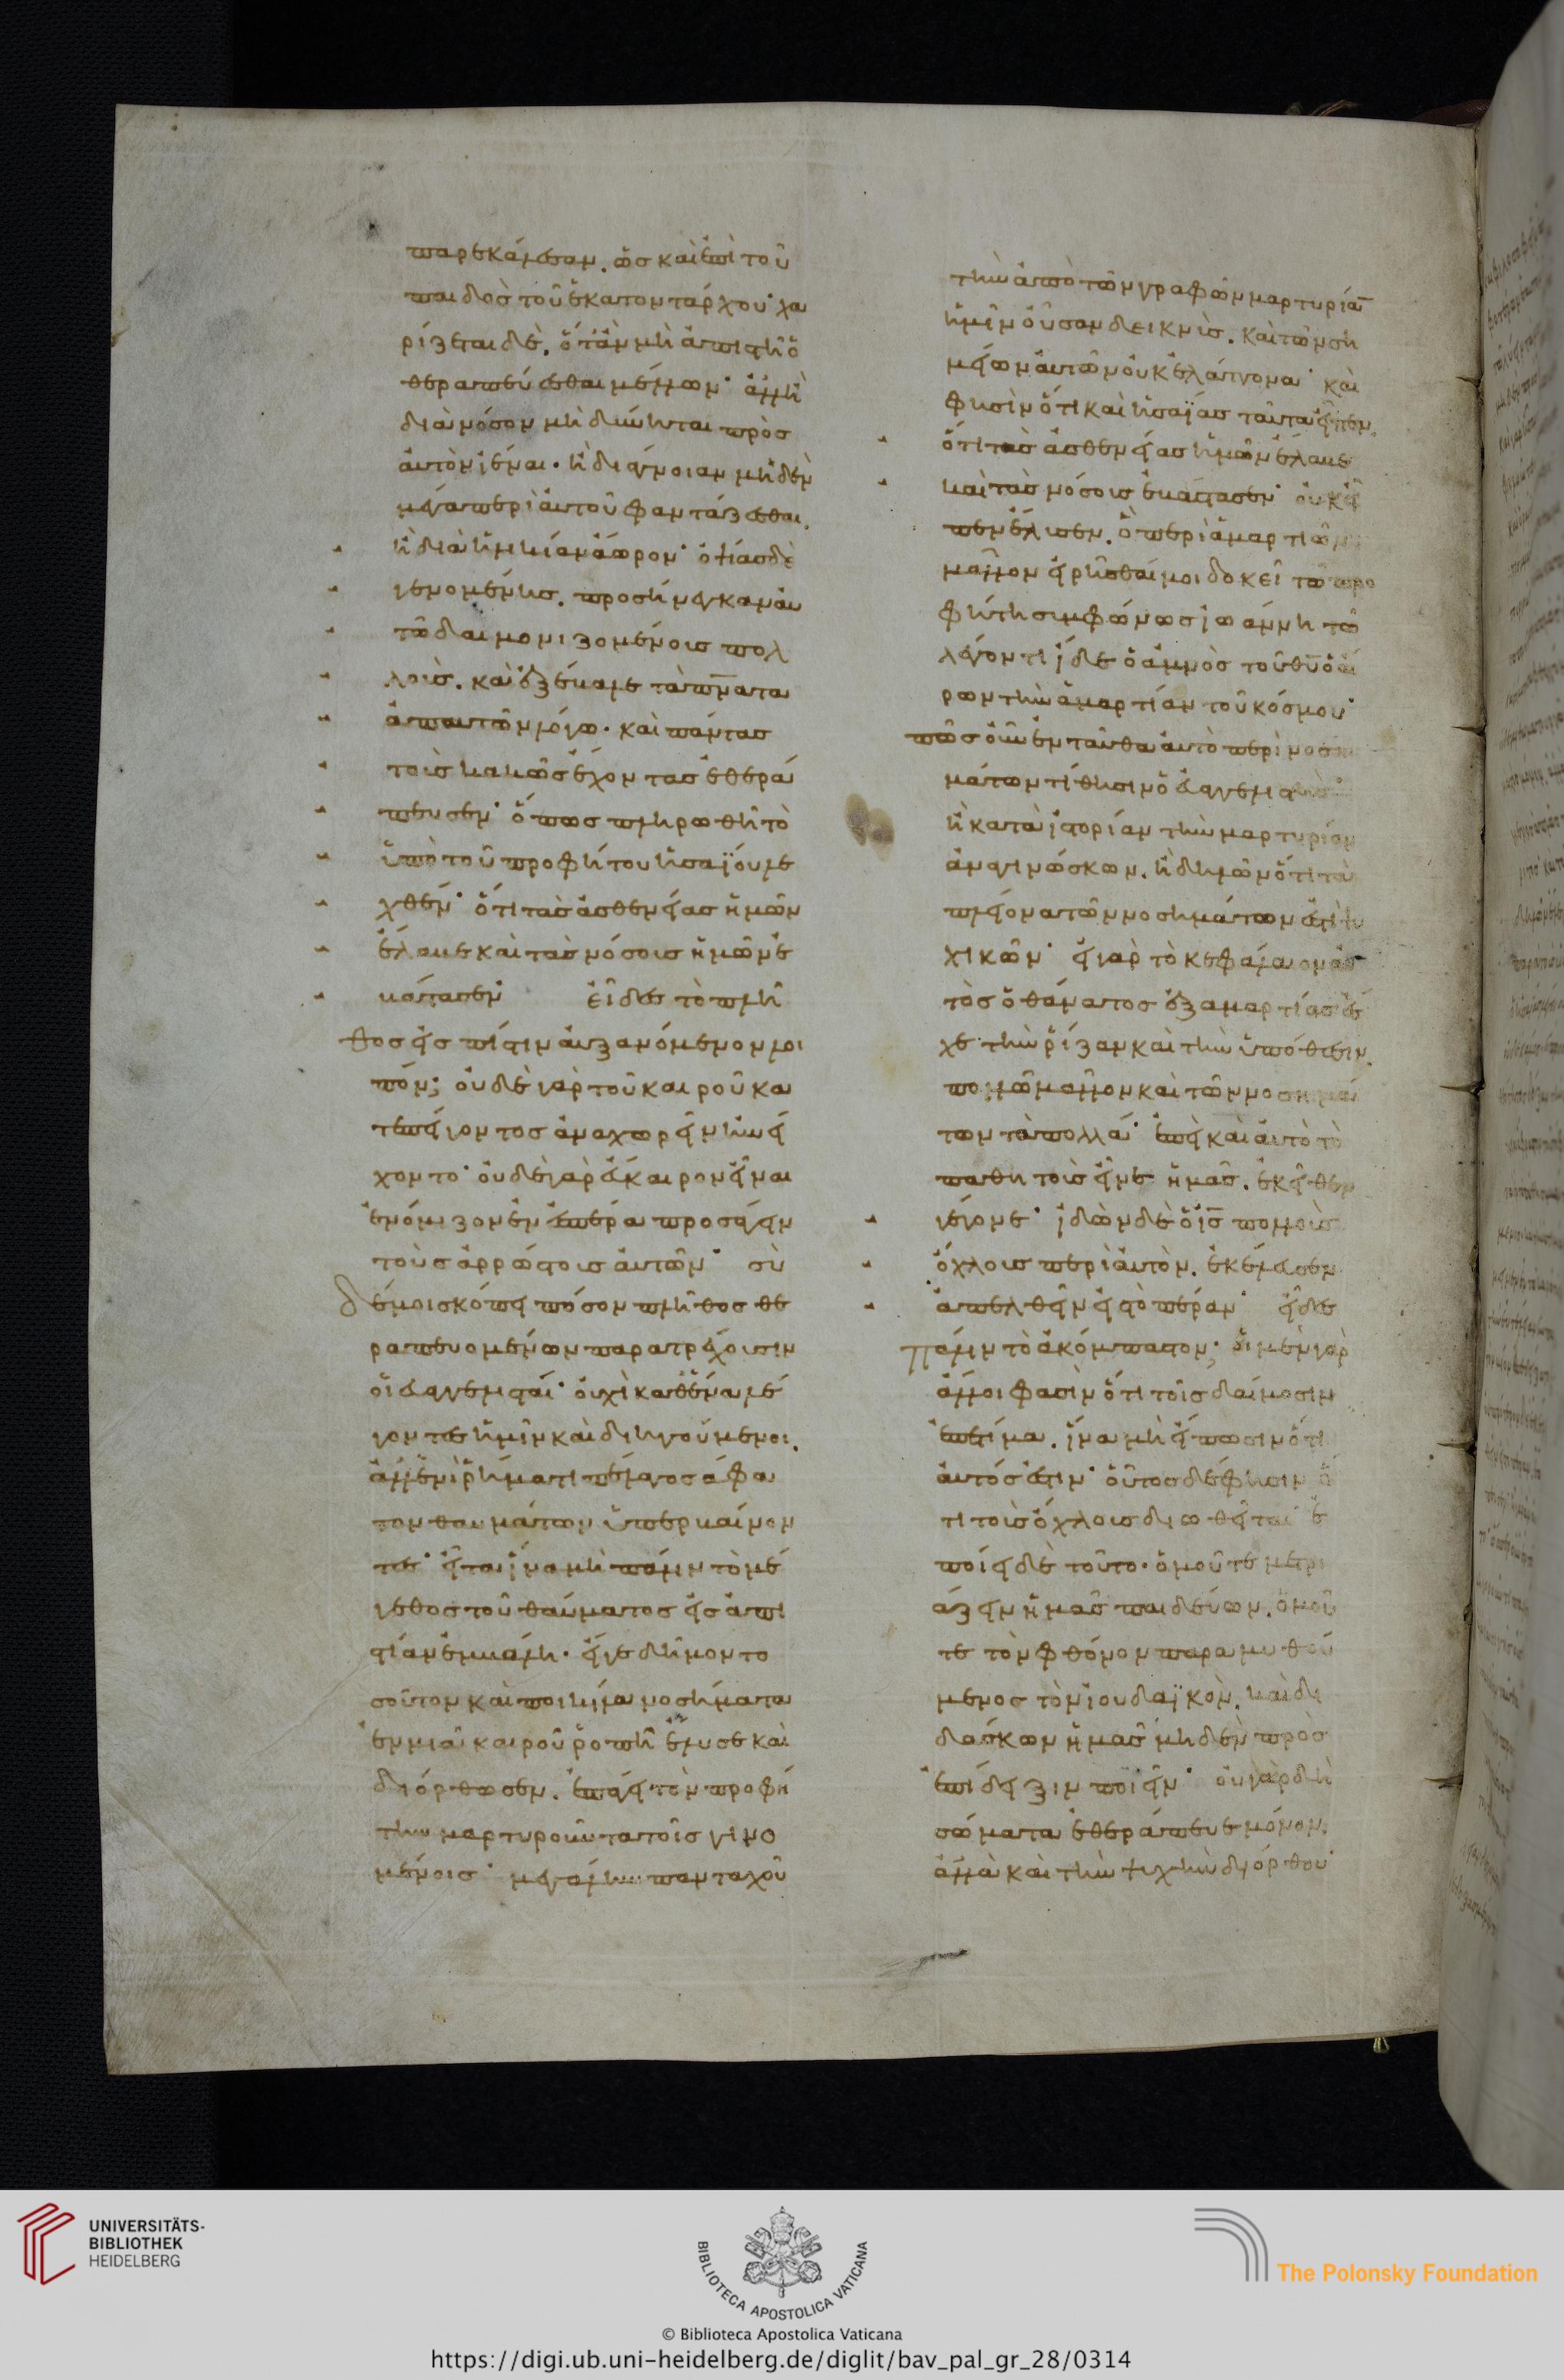 παρεκάλεσαν. ὡς καὶ ἐπὶ τοῦ
παιδὸς τοῦ ἑκατοντάρχου· χα
ρίζεται δὲ, ὅτ' ἂν μὴ ἀπιστῆ ὁ
θεραπεύεσθαι μέλλων· ἀλλ' ἢ
διὰ νόσον μὴ δύνηται πρὸς
αὐτὸν ἰέναι. ἢ δι' ἄγνοιαν μηδὲν
μέγα περὶ αὐτοῦ φαντάζεσθαι.
ἢ δια ἡλικίαν ἄωρον· ὀψίας δὲ
γενομένης. προσήνεγκαν αὐ
τῶ δαιμονιζομένους πολ
λοὺς. καὶ ἐξέβαλε τὰ πν̅ατα
ἀπ' αυτῶν λόγω. καὶ πάντας
τοὺς κακῶς ἔχοντας ἐθερά
πευσεν· ὅπως πληρωθῆ τὸ
ὑπὸ τοῦ προφήτου ἡσαΐου λε
χθέν· ὅτι τὰς ἀσθενείας ἡμῶν
ἔλαβε καὶ τὰς νόσους ἡμῶν ἐ
βάστασεν· εἶδες τὸ πλῆ
θος εἰς πίστιν αὐξανόμενον λοι
πόν; οὐδὲ γὰρ τοῦ καιροῦ κα
τεπείγοντος ἀναχωρεῖν ἠνεί
χοντο· οὐδὲ γὰρ ἄκαιρον εἶναι
ἐνόμιζον ἐν ἑσπέρα προσάγειν
τοὺς ἀρρώστους αὐτῶν· σὺ
δέ μοι σκόπει πόσον πλῆθος θε
ραπευομένων παρατρέχουσιν
οἱ εὐαγγελισταί· οὐχὶ καθ' ἕνα λέ
γοντες ἡμῖν καὶ διηγούμενοι.
ἀλλ' ἑνὶ ῥήματι πέλαγος ἄφα
τον θαυμάτων ὑπερβαίνον
τες· εἶτα ἵνα μὴ πάλιν τὸ μέ
γεθος τοῦ θαύματος εἰς ἀπι
στίαν ἐμβάλη. εἴγε δῆμον το
σοῦτον καὶ ποικίλα νοσήματα
ἐν μιᾶ καιροῦ ῥοπῆ ἔλυσε καὶ
διόρθωσεν. ἐπάγει τὸν προφή
την μαρτυροῦντα τοῖς γινο
μένοις· μεγάλην πανταχοῦ
τὴν ἀπὸ τῶν γραφῶν μαρτυρία̅
ἡμῖν οὖσαν δεικνὺς. καὶ τῶν ση
μείων αὐτῶν οὐκ ἐλάττονα· καὶ
φησὶν ὅτι καὶ ἡσαΐας ταῦτα εἶπεν.
ὅτι τὰς ἀσθενείας ἡμῶν ἔλαβε
καὶ τὰς νόσους ἐβάστασεν· οὐκ εἶ
πεν ἔλυσεν. ὃ περὶ ἁμαρτιῶν
μᾶλλον εἰρῆσθαί μοι δοκεῖ τῶ προ
φήτη συμφώνως ἰωάννη τῶ
λέγοντι ἴδε ὁ ἀμνὸς τοῦ θ̅υ̅ ὁ αἴ
ρων τὴν ἁμαρτίαν τοῦ κόσμου·
πῶς οὖν ἐνταῦθα αὐτὸ περὶ νοση
μάτων τίθησιν ὁ εὐαγγελιστὴς
ἢ κατὰ ἱστορίαν τὴν μαρτυρίαν
ἀναγινώσκων. ἢ δηλῶν ὅτι τὰ
πλείονα τῶν νοσημάτων ἐστὶ ψυ
χικῶν· εἰ γὰρ τὸ κεφάλαιον αὐ
τὸς ὁ θάνατος ἐξ αμαρτίας ἔ
χε τὴν ῥίζαν καὶ τὴν ὑπόθεσιν.
πολλῶ μᾶλλον καὶ τῶν νοσημά
των τὰ πολλά· ἐπεὶ καὶ αὐτὸ τὸ
παθητοὺς εἶναι ἡμᾶς. ἐκεῖθεν
γέγονε· ἰδὼν δὲ ὁ ι̅ς̅ πολλοὺς
ὄχλους περὶ αὐτὸν. ἐκέλευσεν
ἀπελθεῖν εἰς τὸ πέραν· εἶδες
πάλιν τὸ ἀκόμπαστον; οἱ μὲν γὰρ
ἄλλοι φασὶν ὅτι τοῖς δαίμοσιν
ἐπετίμα. ἵνα μὴ εἴπωσιν ὅτι
αὐτός ἐστιν· οὗτος δέ φησιν ὅ
τι τοὺς ὄχλους διωθεῖται· ἐ
ποίει δὲ τοῦτο. ὁμοῦ τε μετρι
άζειν ἡμᾶς παιδεύων. ὁμοῦ
τε τὸν φθόνον παραμυθού
μενος τὸν ἰουδαϊκὸν. καὶ δι
δάσκων ἡμᾶς μηδὲν πρὸς
ἐπίδειξιν ποιεῖν· οὐ γὰρ δὴ
σώματα ἐθεράπευε μόνον.
ἀλλὰ καὶ τὴν ψυχὴν διόρθου·
UNIVERSITÄTS-
BIBLIOTHEK
HEIDELBERG
BIBLIOTECA APOSTOLICA VATICANA
The Polonsky Foundation
© Biblioteca Apostolica Vaticana
https://digi.ub.uni-heidelberg.de/diglit/bav_pal_gr_28/0314